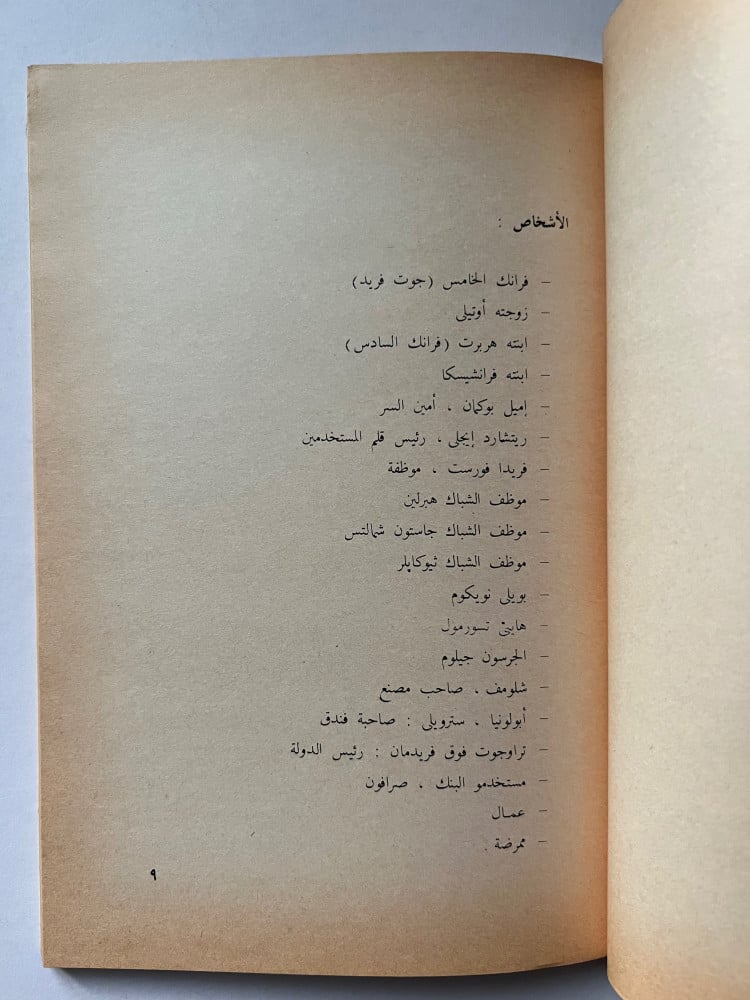 الأشخاص :
– فرانك الخامس (جوت فريد)
– زوجته أوتيلى
– ابنته هربرت (فرانك السادس)
– ابنته فرانشيسكا
– إميل بوكمان ، أمين السر
– ريتشارد إيجلى ، رئيس قلم المستخدمين
– فريدا فورست ، موظفة
– موظف الشباك هبرلين
– موظف الشباك جاستون شمالتس
– موظف الشباك ثيوكاپلر
– بويلى نويكوم
– هاينى تسورمول
– الجرسون جيلوم
– شلومف ، صاحب مصنع
– أبولونيا ، سترويلى : صاحبة فندق
– تراوجوت فوق فريدمان : رئيس الدولة
– مستخدمو البنك ، صرافون
– عمال
– ممرضة .
٩